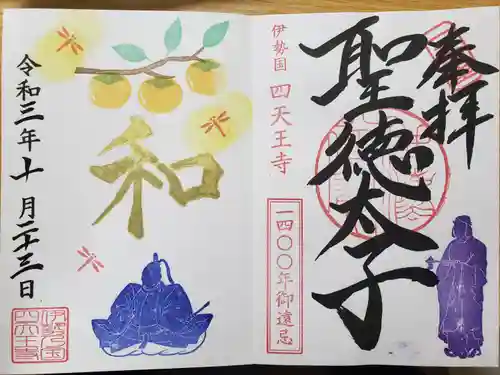 奉拝
聖徳太子
伊勢国 四天王寺
一四〇〇年御遠忌
和
令和三年十月二十三日
伊勢国
四天王寺